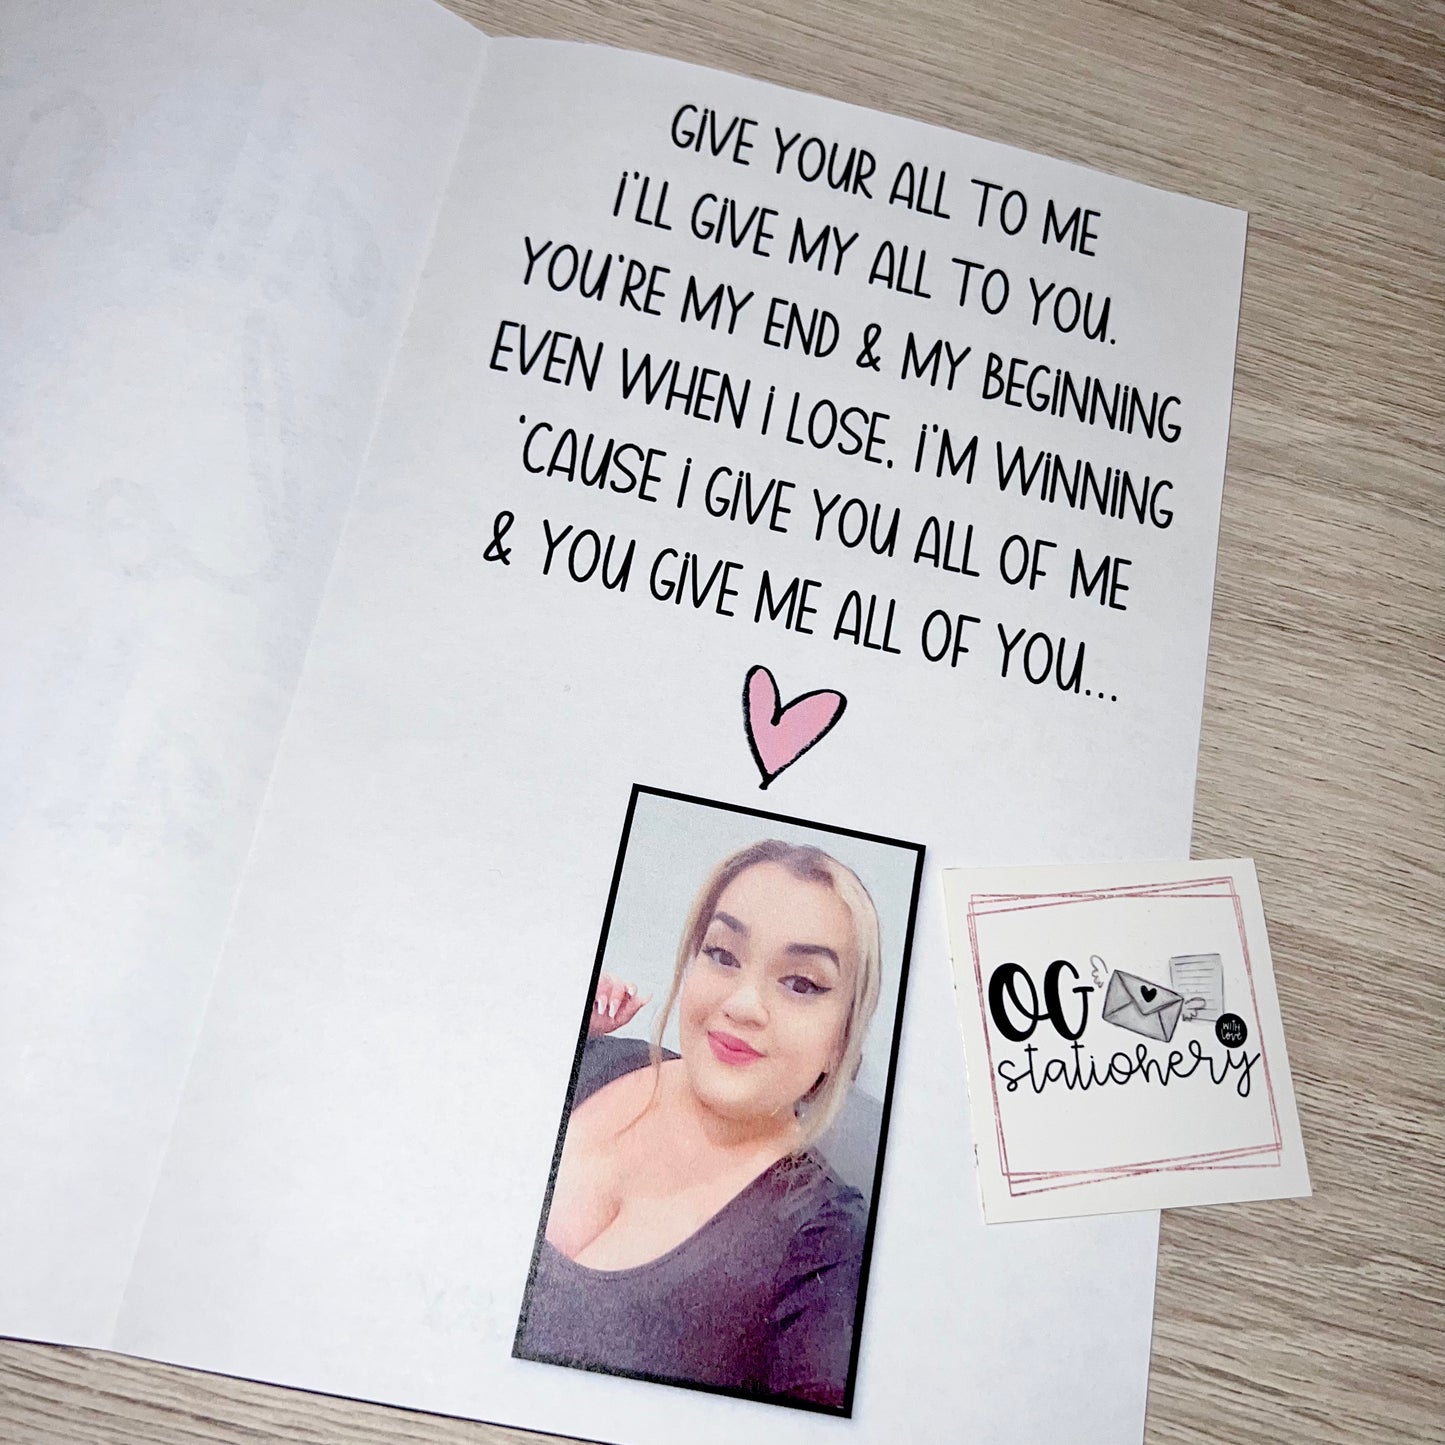 GIVE YOUR ALL TO ME
I'LL GIVE MY ALL TO YOU.
YOU'RE MY END & MY BEGINNING
EVEN WHEN I LOSE, I'M WINNING
'CAUSE I GIVE YOU ALL OF ME
& YOU GIVE ME ALL OF YOU...
OG
WITH
love
stationery